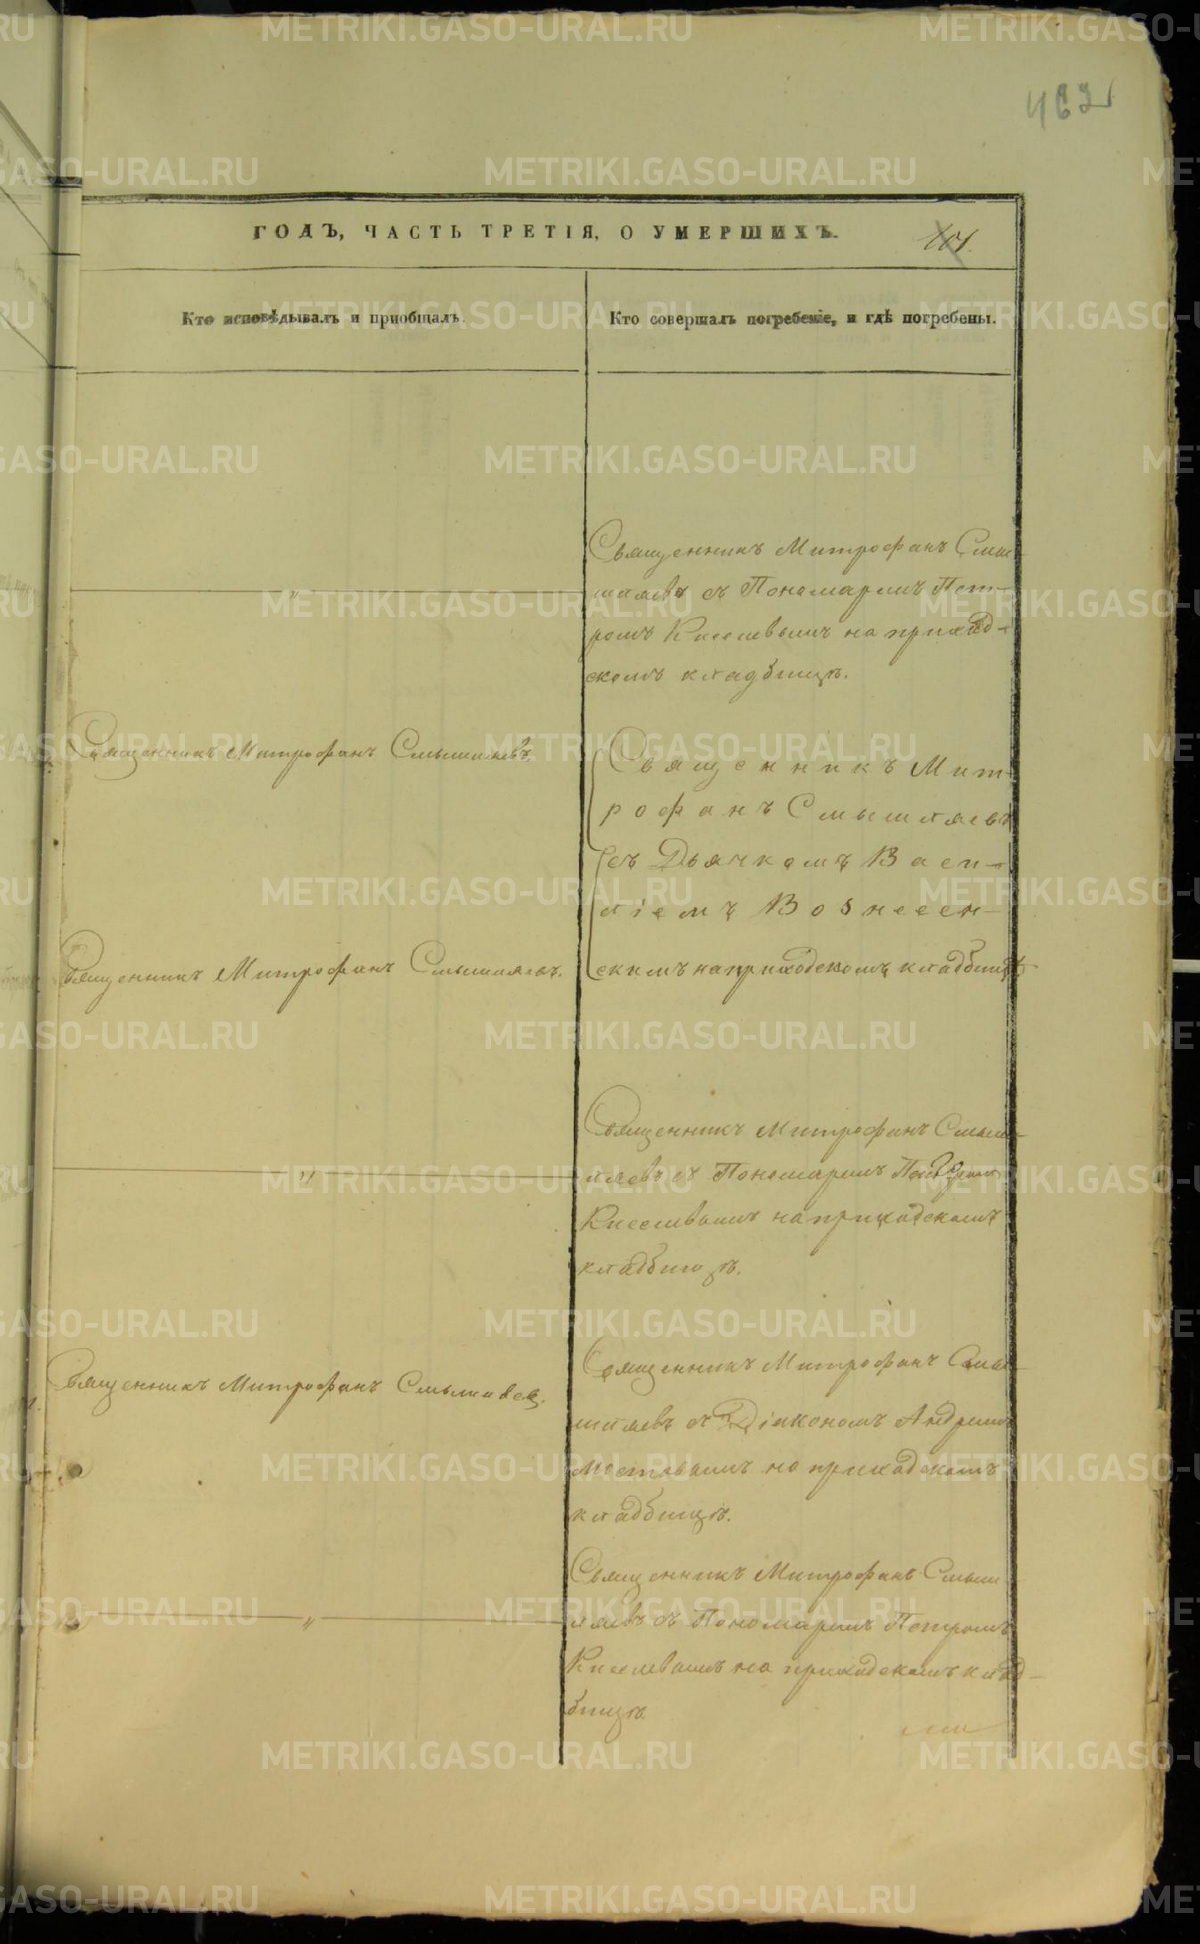 ГОДЪ, ЧАСТЬ ТРЕТІЯ, О УМЕРШИХЪ.
Кто исповѣдывалъ и пріобщалъ.
Кто совершалъ погребеніе, и гдѣ погребены.
Священникъ Митрофанъ Смы-
шляевъ съ Пономаремъ Пет-
ромъ Киселевымъ на приход-
скомъ кладбищѣ.
Священникъ Митрофанъ Смышляевъ.
Священникъ Мит-
рофанъ Смышляевъ
съ Дьячкомъ Васи-
ліемъ Вознесен-
скимъ на приходскомъ кладбищѣ
Священникъ Митрофанъ Смышляевъ.
Священникъ Митрофанъ Смыш-
ляевъ съ Пономаремъ Петромъ
Киселевымъ на приходскомъ
кладбищѣ.
Священникъ Митрофанъ Смышляев.
Священникъ Митрофанъ Смы-
шляевъ съ Діакономъ Андреемъ
на приходскомъ
кладбищѣ.
Священникъ Митрофанъ Смыш-
ляевъ съ Пономаремъ Петромъ
Киселевымъ на приходскомъ клад-
бищѣ
METRIKI.GASO-URAL.RU